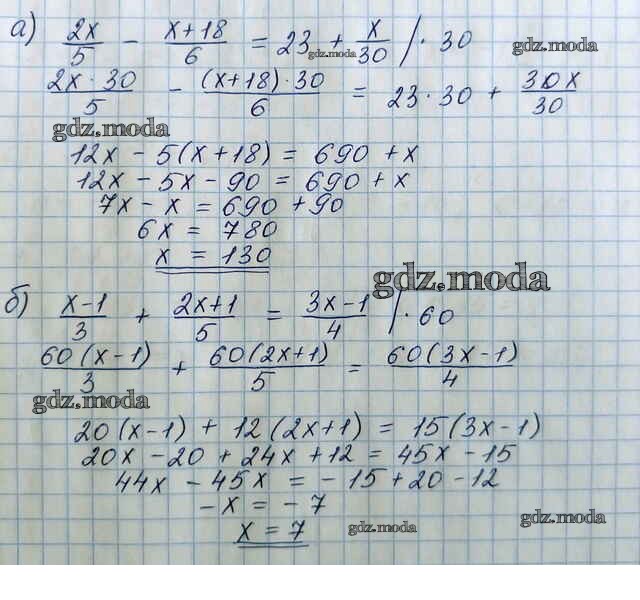 а) 2x/5 - (x+18)/6 = 23 + x/30 /· 30
gdz.moda
gdz.moda
2x · 30/5 - (x+18) · 30/6 = 23 · 30 + 30x/30
gdz.moda
12x - 5(x+18) = 690 + x
12x - 5x - 90 = 690 + x
7x - x = 690 + 90
6x = 780
x = 130
gdz.moda
б) (x-1)/3 + (2x+1)/5 = (3x-1)/4 /· 60
60(x-1)/3 + 60(2x+1)/5 = 60(3x-1)/4
gdz.moda
20(x-1) + 12(2x+1) = 15(3x-1)
20x - 20 + 24x + 12 = 45x - 15
44x - 45x = - 15 + 20 - 12
- x = - 7
x = 7
gdz.moda
gdz.moda